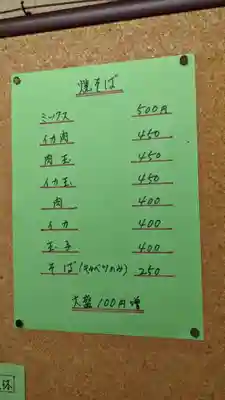 焼そば
ミックス 500円
イカ肉 450
肉玉 450
イカ玉 450
肉 400
イカ 400
玉子 400
そば(キャベツのみ) 250
大盛100円増